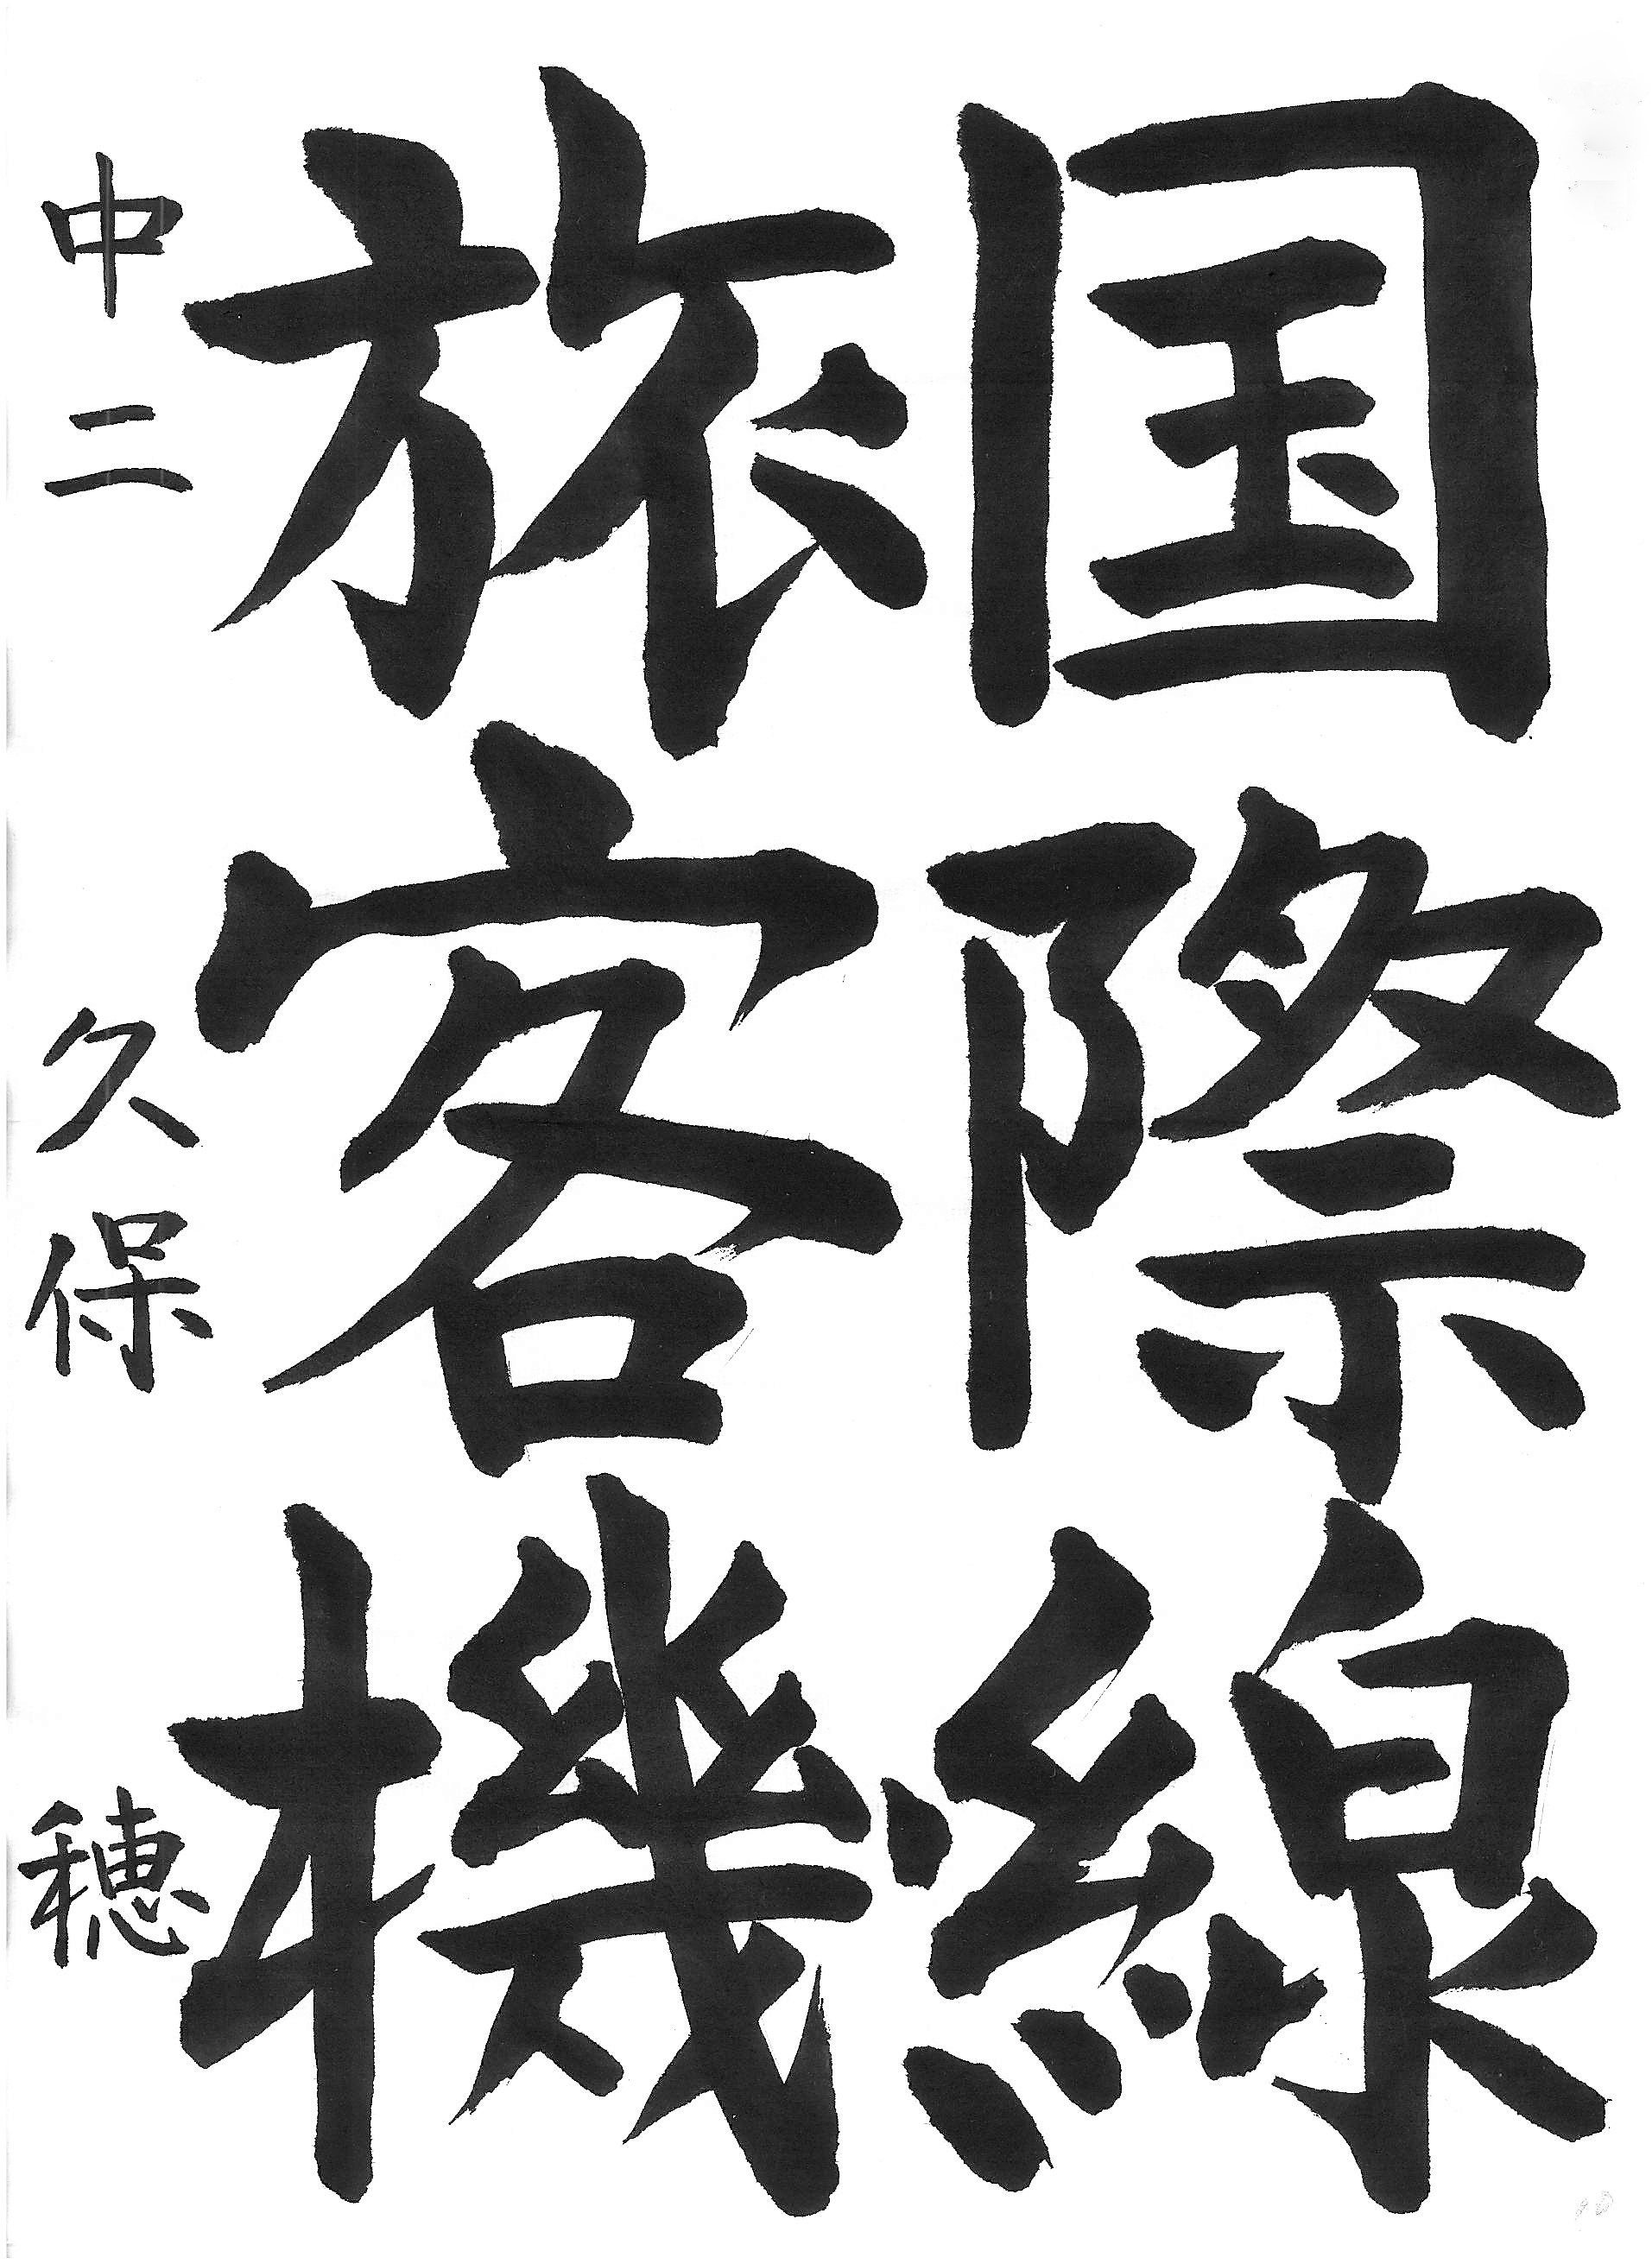 国際線
旅客機
中二 久保 穂